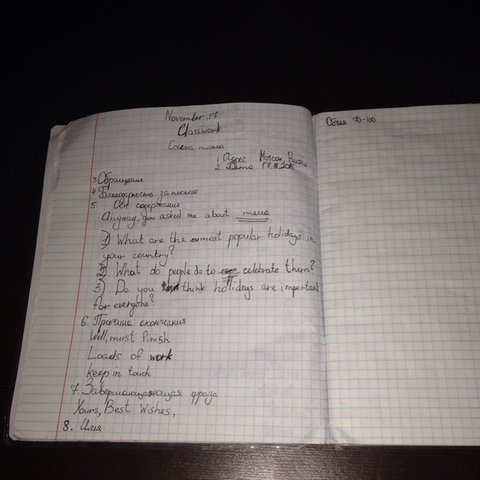 November, 17
Classwork
письма
1 Адрес Moscow, Russia
2. Дата 17.11.
3 Обращение
4 Благодарность за письмо
5 Осн содержание
Anyway, you asked me about тема
1) What are the most popular holidays in
your country?
2) What do people do to celebrate them?
3) Do you think holidays are important
for everyone?
6. Причина окончания
Well, must finish
Loads of work
Keep in touch
7. Завершающая фраза
Yours, Best Wishes,
8. Имя
-100